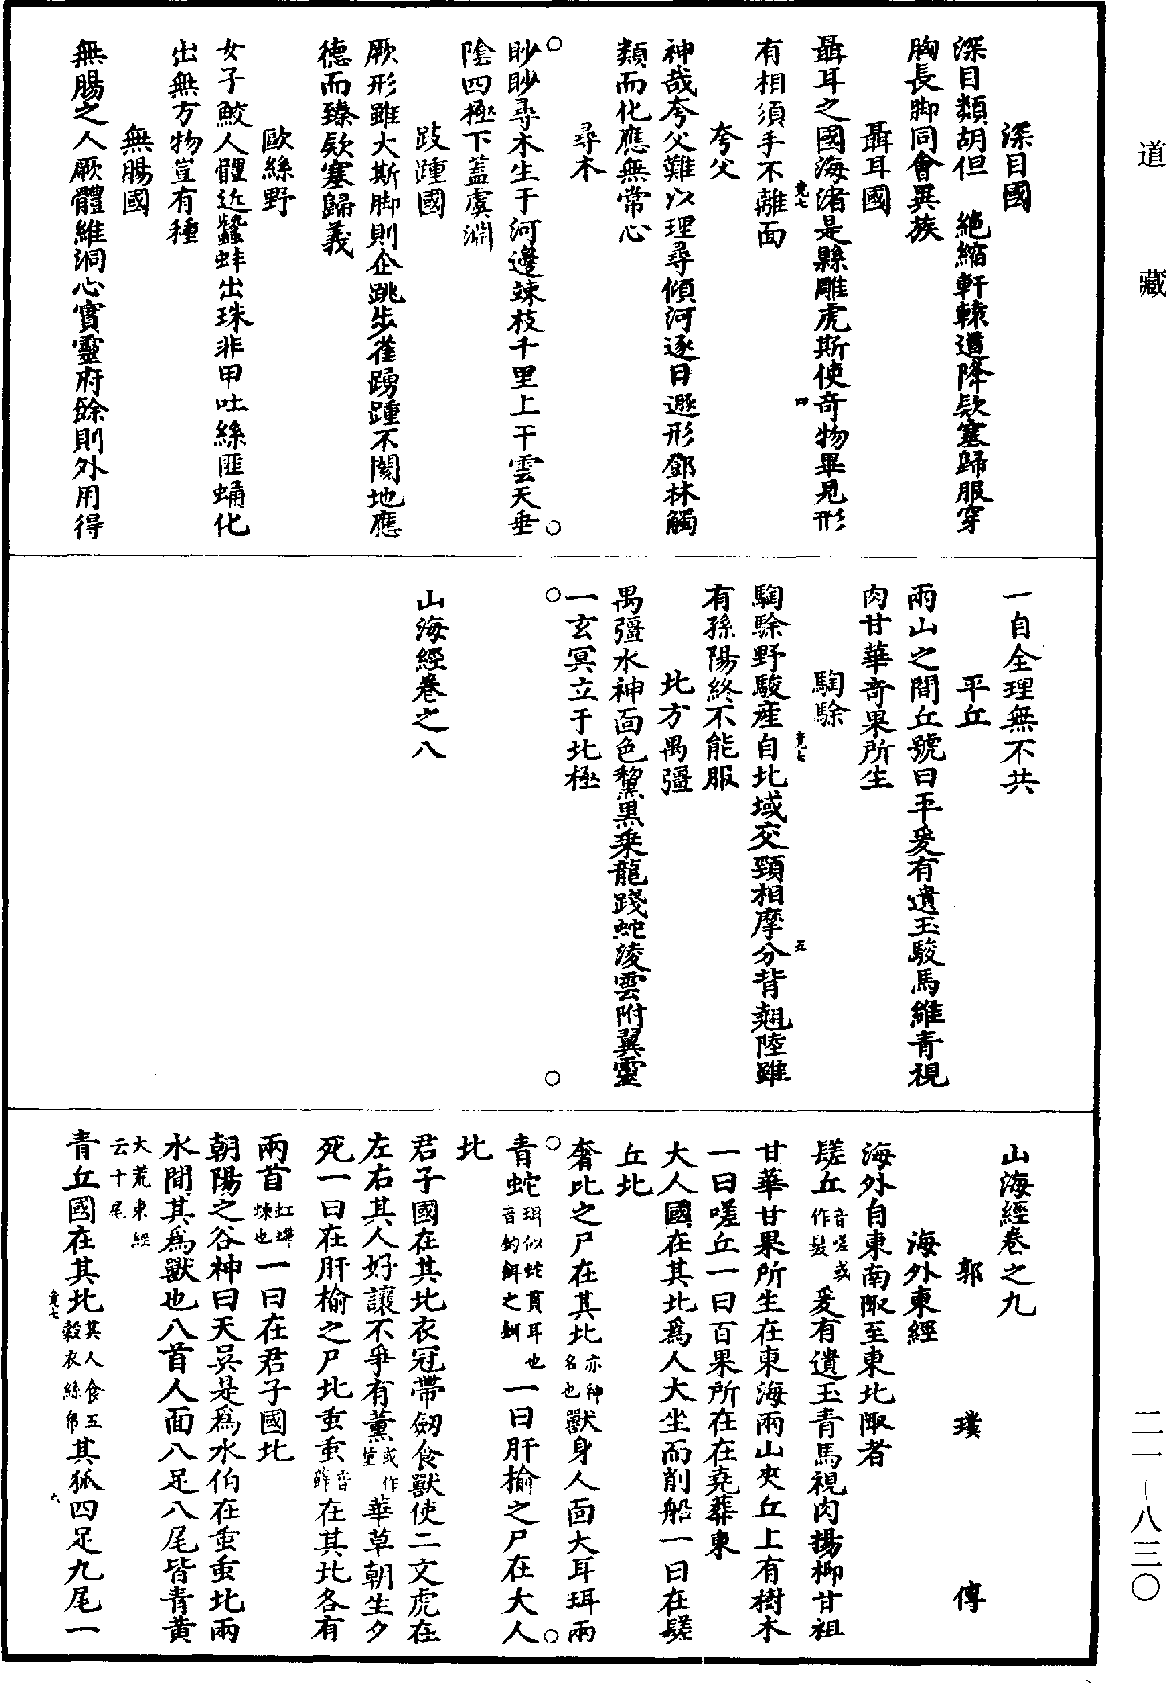 道藏
深目國
深目類胡但　絶縮軒轅道降欵塞歸服穿
胸長脚同會異族
聶耳國
聶耳之國海渚是縣雕虎斯使奇物畢見形
有相須手不離面
夸父
神哉夸父難以理尋傾河逐日遯形鄧林觸
類而化應無常心
尋木
眇眇尋木生于河邊竦枝千里上干雲天垂
陰四極下蓋虞淵
跂踵國
厥形雖大斯脚則企跳步雀踴踵不閡地應
德而臻欵塞歸義
歐絲野
女子鮫人體近蠶蚌出珠非甲吐絲匪蛹化
出無方物豈有種
無腸國
無腸之人厥體維洞心實靈府餘則外用得
一自全理無不共
平丘
兩山之間丘號曰平爰有遺玉駿馬維青視
肉甘華奇果所生
騊駼
騊駼野駿産自北域交頸相摩分背翹陸雖
有孫陽終不能服
北方禺彊
禺彊水神面色黧黑乗龍踐蛇淩雲附翼靈
一玄冥立于北極
山海經卷之八
山海經卷之九
郭璞傳
海外東經
海外自東南陬至東北陬者
䰈丘音嗟或作髮爰有遺玉青馬視肉揚柳甘柤
甘華甘果所生在東海兩山夾丘上有樹木
一曰嗟丘一曰百果所在在堯葬東
大人國在其北爲人大坐而削船一曰在䰈
丘北
奢比之尸在其北亦神名也獸身人面大耳珥兩
青蛇珥似蛇貫耳也音釣餌之餌一曰肝榆之尸在大人
北
君子國在其北衣冠帶劒食獸使二文虎在
左右其人好讓不爭有薰或作菫華草朝生夕
死一曰在肝榆之尸北䖝䖝音虹在其北各有
兩首虹螮蝀也一曰在君子國北
朝陽之谷神曰天吳是爲水伯在䖝䖝北兩
水間其爲獸也八首人面八足八尾皆青黄
大荒東經云十尾
青丘國在其北其人食五穀衣絲帛其狐四足九尾一
二一—八三〇